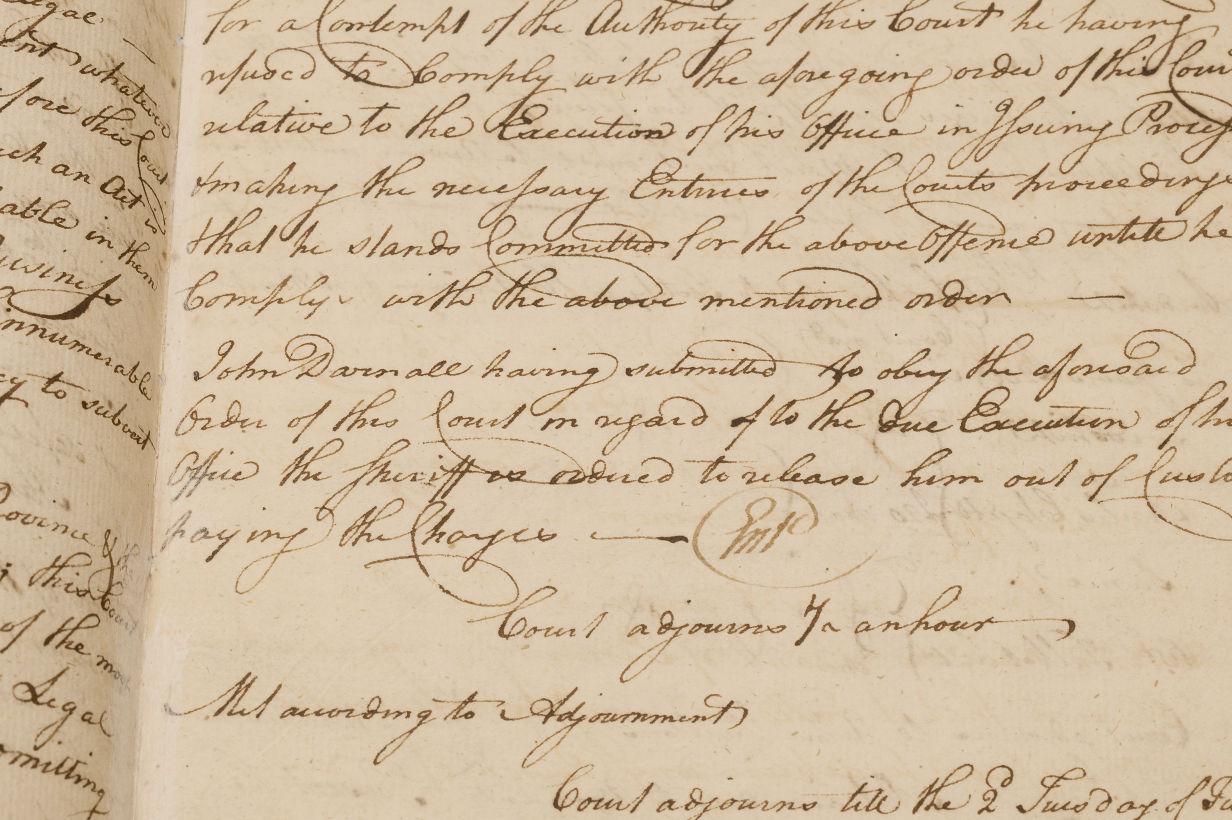 Legal
ent whatever
before this Court
such an Act is
able in them
Business
innumerable
cy to subvert
Province & the
this Court
of the most
Legal
omitting
for a Contempt of the Authority of this Court he having
refused to Comply with the aforegoing order of this Cour
relative to the Execution of his Office in Issuing Process
& making the necessary Entries of the Courts proceedings
& that he stands Committed for the above Offence untill he
Complys with the above mentioned order —
John Darnall having submitted to obey the aforesaid
Order of this Court in regard to the due Execution of his
Office the Sheriff is ordered to release him out of Custo
paying the Charges — Entd
Court adjourns for an hour
Met according to Adjournment
Court adjourns till the 2d Tuesday of